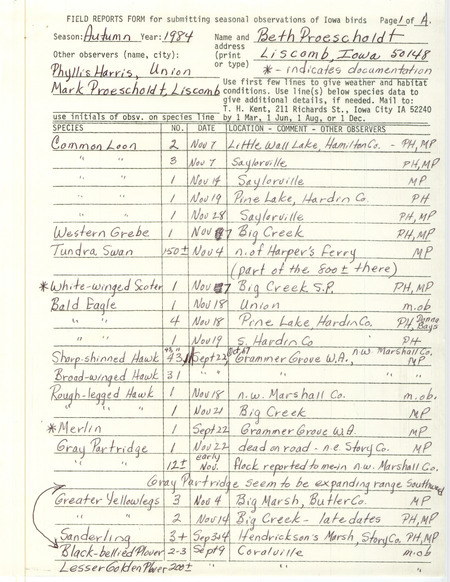 FIELD REPORTS FORM for submitting seasonal observations of Iowa birds Page 1 of A.
Season: Autumn Year: 1984 Name and Beth Proescholdt
address
Other observers (name, city): (print Liscomb, Iowa 50148
or type) * - indicates documentation
Phyllis Harris, Union Use first few lines to give weather and habitat
Mark Proescholdt, Liscomb conditions. Use line(s) below species data to
give additional details, if needed. Mail to:
T. H. Kent, 211 Richards St., Iowa City IA 52240
use initials of obsv. on species line by 1 Mar, 1 Jun, 1 Aug, or 1 Dec.
SPECIES NO. DATE LOCATION - COMMENT - OTHER OBSERVERS
Common Loon 2 Nov 7 Little Wall Lake, Hamilton Co. - PH, MP
" " 3 Nov 7 Saylorville PH, MP
" " 1 Nov 14 Saylorville MP
" " 1 Nov 19 Pine Lake, Hardin Co. PH
" " 1 Nov 28 Saylorville PH, MP
Western Grebe 1 Nov 7 Big Creek PH, MP
Tundra Swan 150± Nov 4 n. of Harper's Ferry MP
(part of the 800± there)
* White-winged Scoter 1 Nov 7 Big Creek S.P. PH, MP
Bald Eagle 1 Nov 18 Union m.ob
" " 4 Nov 18 Pine Lake, Hardin Co. PH,
" " 1 Nov 19 S. Hardin Co PH
Sharp-shinned Hawk 43 Sept 22 Grammer Grove W.A., n.w. Marshall Co. MP
Broad-winged Hawk 31 " " " "
Rough-legged Hawk 1 Nov 18 n.w. Marshall Co. m.ob.
" " 1 Nov 21 Big Creek MP
* Merlin 1 Sept 22 Grammer Grove W.A. MP
Gray Partridge 1 Nov 22 dead on road - n.e Story Co. MP
" " 12± early Nov. flock reported to me in n.w. Marshall Co.
Gray Partridge seem to be expanding range Southward
Greater Yellowlegs 3 Nov 4 Big Marsh, Butler Co. MP
" " 2 Nov 14 Big Creek - late dates PH, MP
Sanderling 3+ Sep 3+4 Hendrickson's Marsh, Story Co. PH, MP
Black-bellied Plover 2-3 Sept 9 Coralville m.ob
Lesser Golden Plover 200±